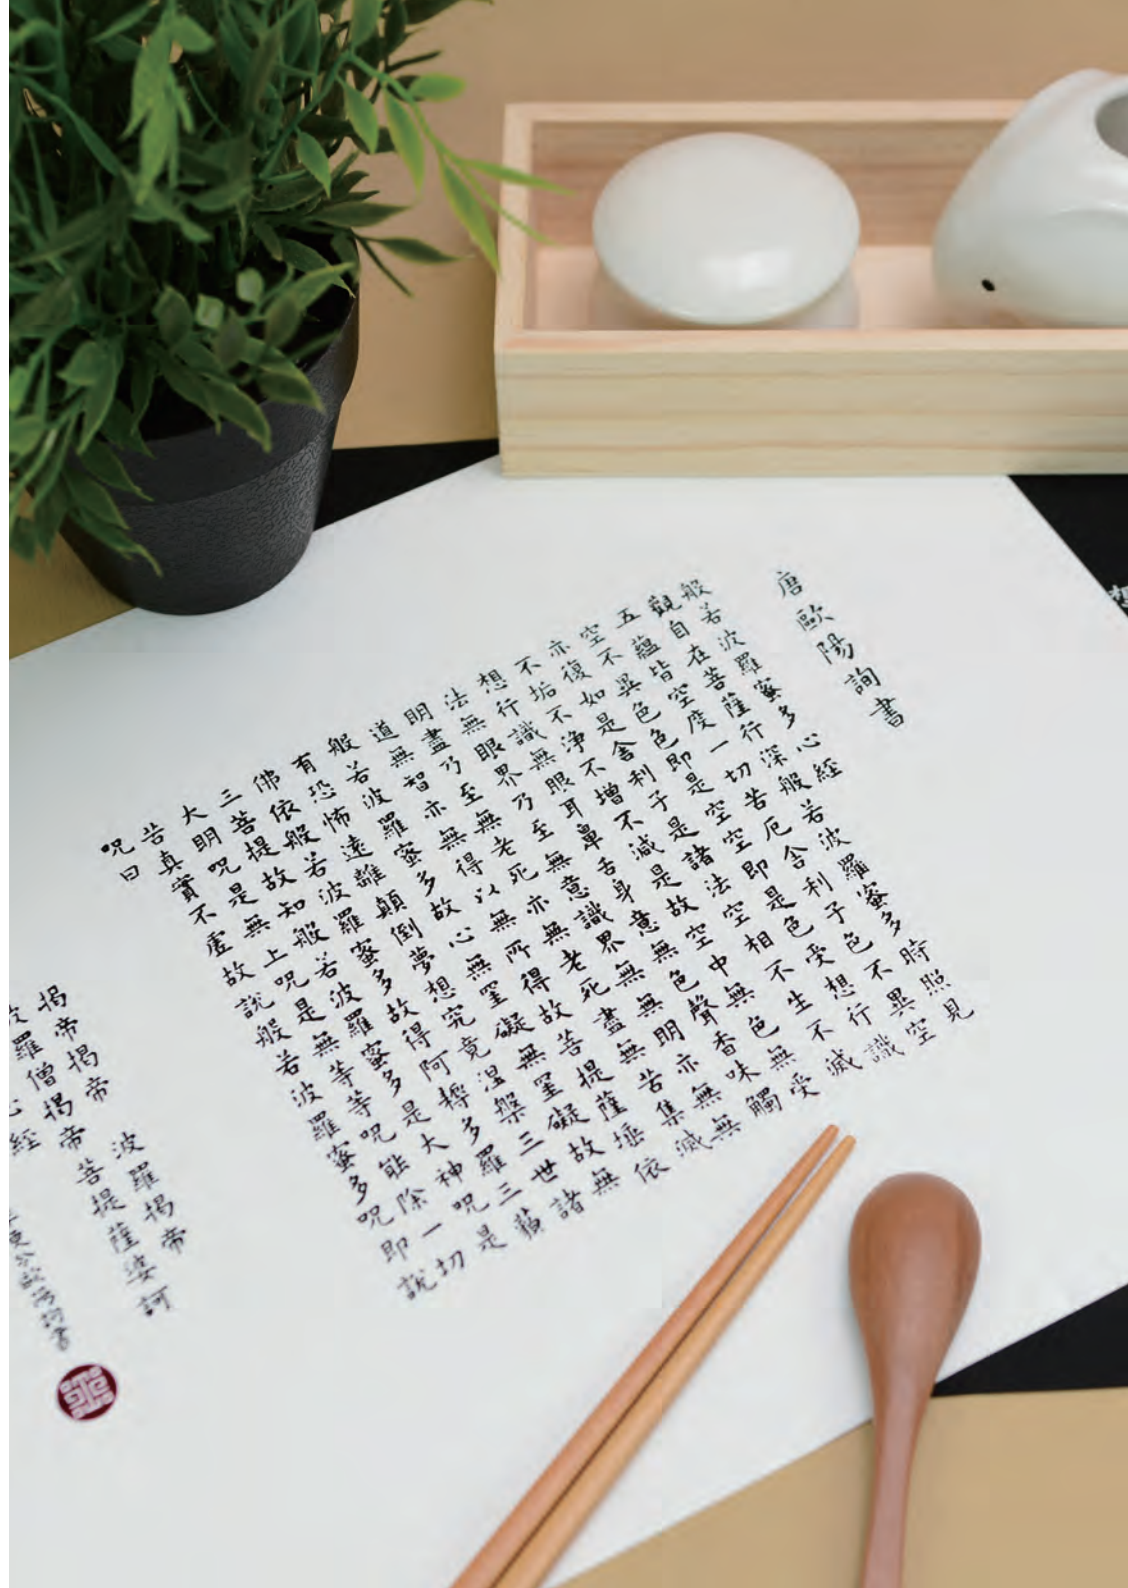 唐歐陽詢書
般若波羅蜜多心經
觀自在菩薩行深般若波羅蜜多時照見
五蘊皆空度一切苦厄舍利子色不異空
空不異色色即是空空即是色受想行識
亦復如是舍利子是諸法空相不生不滅
不垢不淨不增不減是故空中無色無受
想行識無眼耳鼻舌身意無色聲香味觸
法無眼界乃至無意識界無無明亦無無
明盡乃至無老死亦無老死盡無苦集滅
道無智亦無得以無所得故菩提薩埵依
般若波羅蜜多故心無罣礙無罣礙故無
有恐怖遠離顛倒夢想究竟涅槃三世諸
佛依般若波羅蜜多故得阿耨多羅三藐
三菩提故知般若波羅蜜多是大神呪是
大明呪是無上呪是無等等呪能除一切
苦真實不虛故說般若波羅蜜多呪即說
呪曰
揭帝揭帝 波羅揭帝
波羅僧揭帝 菩提薩婆訶
心經